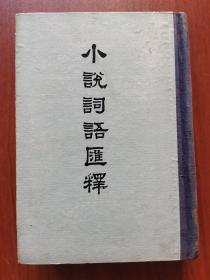 小說詞語匯釋